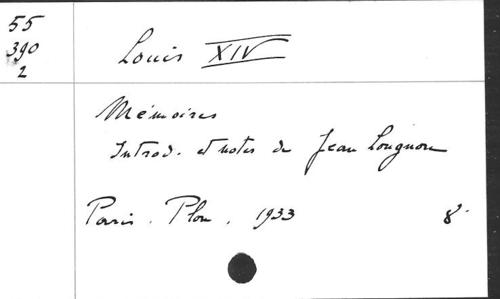 55
390
2
Louis XIV
Mémoires
Introd. et notes de Jean Longnon
Paris. Plon. 1933 8°